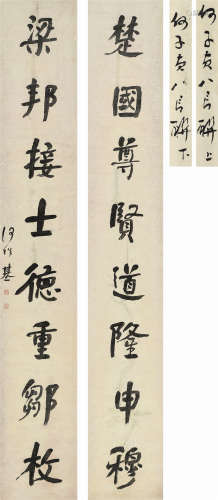 楚國尊賢道隆申穆
梁邦接士德重鄒枚
何紹基
何子貞八言聯上
何子貞八言聯下